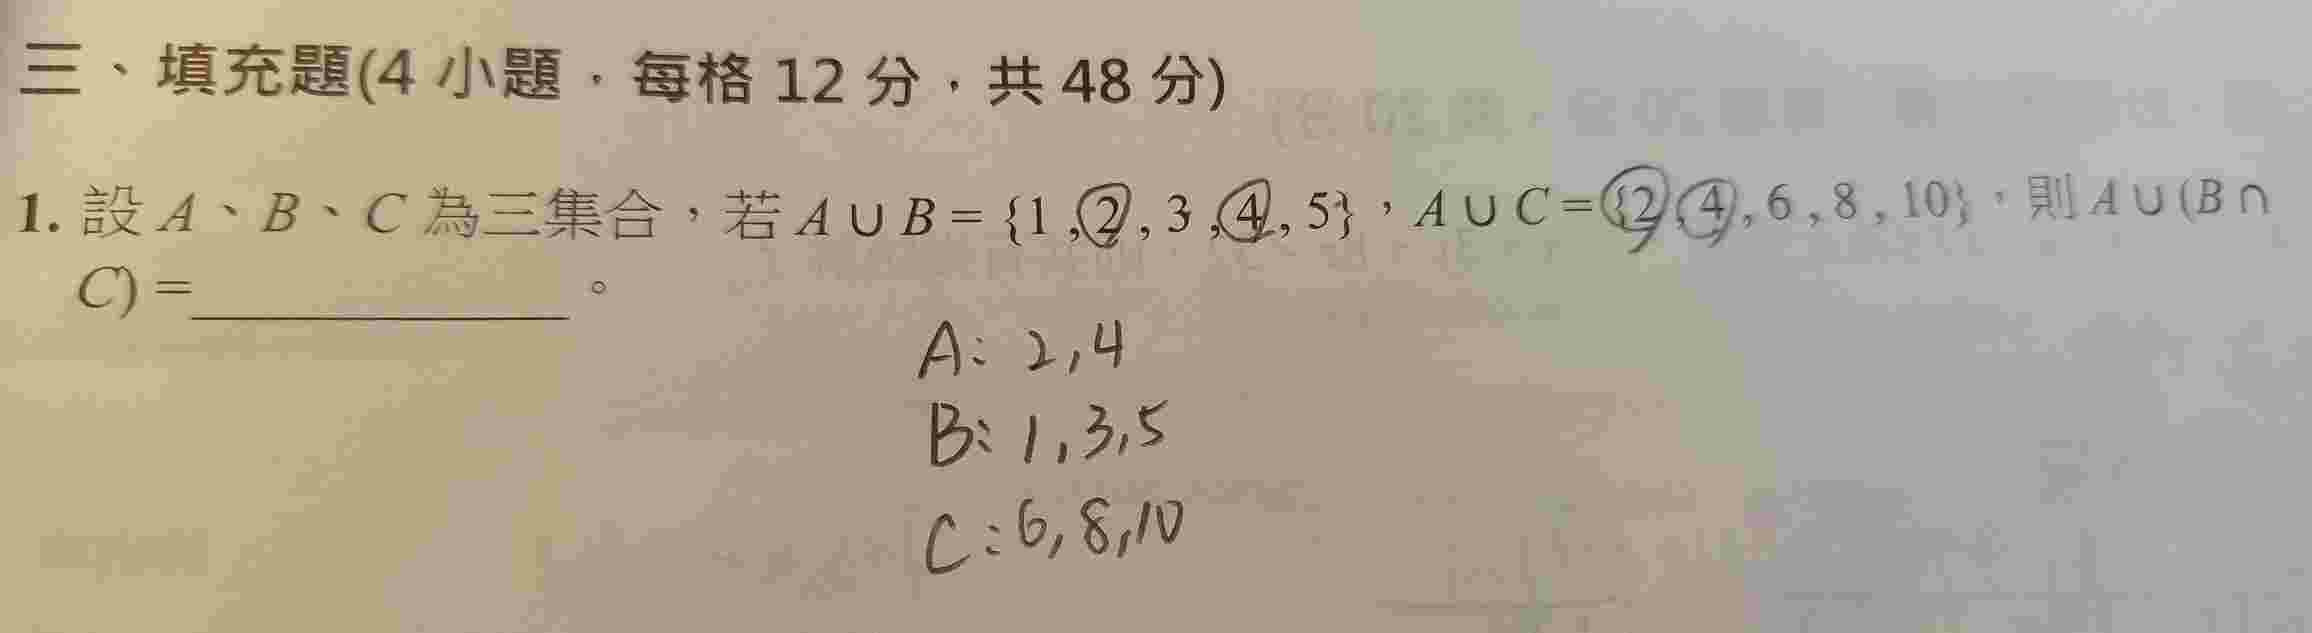 三、填充題(4 小題，每格 12 分，共 48 分)
1. 設 A、B、C 為三集合，若 A ∪ B = {1 , 2 , 3 , 4 , 5}，A ∪ C = {2 , 4 , 6 , 8 , 10}，則 A ∪ (B ∩
C) = ____________ 。
A: 2, 4
B: 1, 3, 5
C: 6, 8, 10